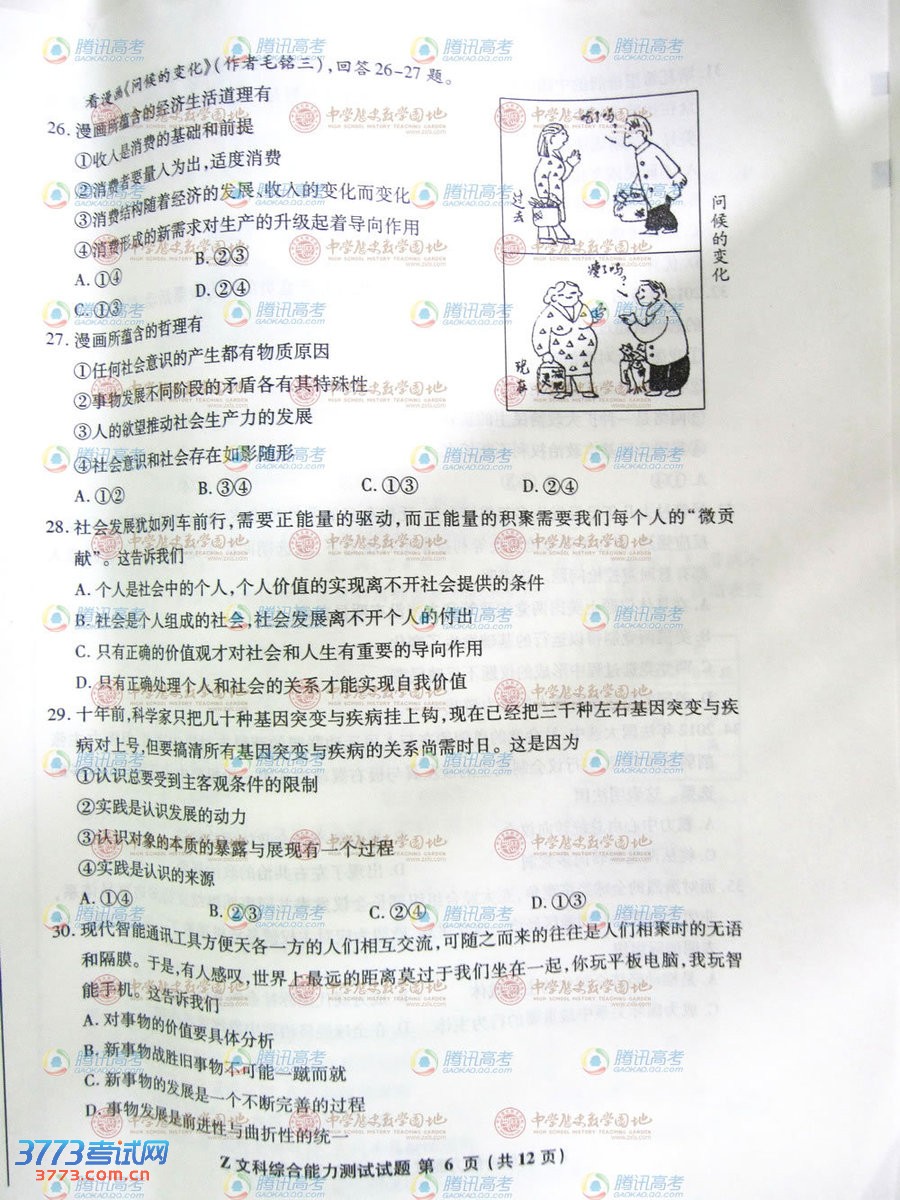 看漫画《问候的变化》(作者毛铭三),回答26-27题。
26. 漫画所蕴含的经济生活道理有
①收入是消费的基础和前提
②消费者要量入为出,适度消费
③消费结构随着经济的发展、收入的变化而变化
④消费形成的新需求对生产的升级起着导向作用
A. ①④ B. ②③
C. ①③ D. ②④
过去
喝了吗?
现在
瘦了吗?
问候的变化
27. 漫画所蕴含的哲理有
①任何社会意识的产生都有物质原因
②事物发展不同阶段的矛盾各有其特殊性
③人的欲望推动社会生产力的发展
④社会意识和社会存在如影随形
A. ①② B. ③④ C. ①③ D. ②④
28. 社会发展犹如列车前行,需要正能量的驱动,而正能量的积聚需要我们每个人的“微贡
献”。这告诉我们
A. 个人是社会中的个人,个人价值的实现离不开社会提供的条件
B. 社会是个人组成的社会,社会发展离不开个人的付出
C. 只有正确的价值观才对社会和人生有重要的导向作用
D. 只有正确处理个人和社会的关系才能实现自我价值
29. 十年前,科学家只把几十种基因突变与疾病挂上钩,现在已经把三千种左右基因突变与疾
病对上号,但要搞清所有基因突变与疾病的关系尚需时日。这是因为
①认识总要受到主客观条件的限制
②实践是认识发展的动力
③认识对象的本质的暴露与展现有一个过程
④实践是认识的来源
A. ①④ B. ②③ C. ②④ D. ①③
30. 现代智能通讯工具方便天各一方的人们相互交流,可随之而来的往往是人们相聚时的无语
和隔膜。于是,有人感叹,世界上最远的距离莫过于我们坐在一起,你玩平板电脑,我玩智
能手机。这告诉我们
A. 对事物的价值要具体分析
B. 新事物战胜旧事物不可能一蹴而就
C. 新事物的发展是一个不断完善的过程
D. 事物发展是前进性与曲折性的统一
Z 文科综合能力测试试题 第 6 页 (共12页)
3773考试网
3773.com.cn
腾讯高考
GAOKAO.QQ.COM
中学历史教学园地
HIGH SCHOOL HISTORY TEACHING GARDEN
www.zxls.com